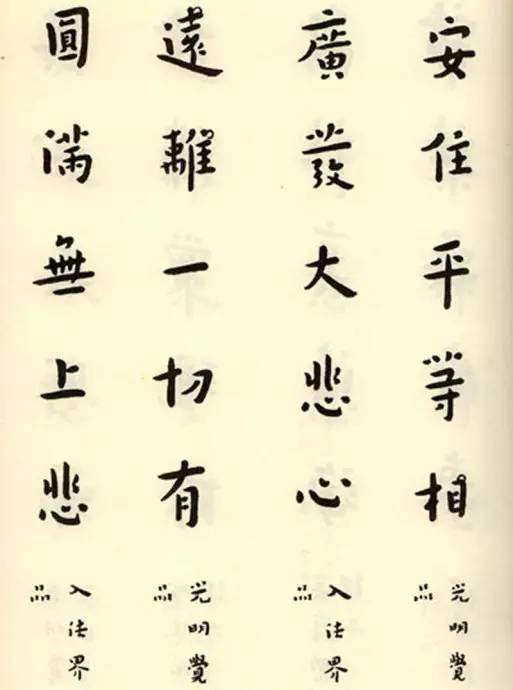 安住平等相
光明覺品
廣發大悲心
入法界品
遠離一切有
光明覺品
圓滿無上悲
入法界品